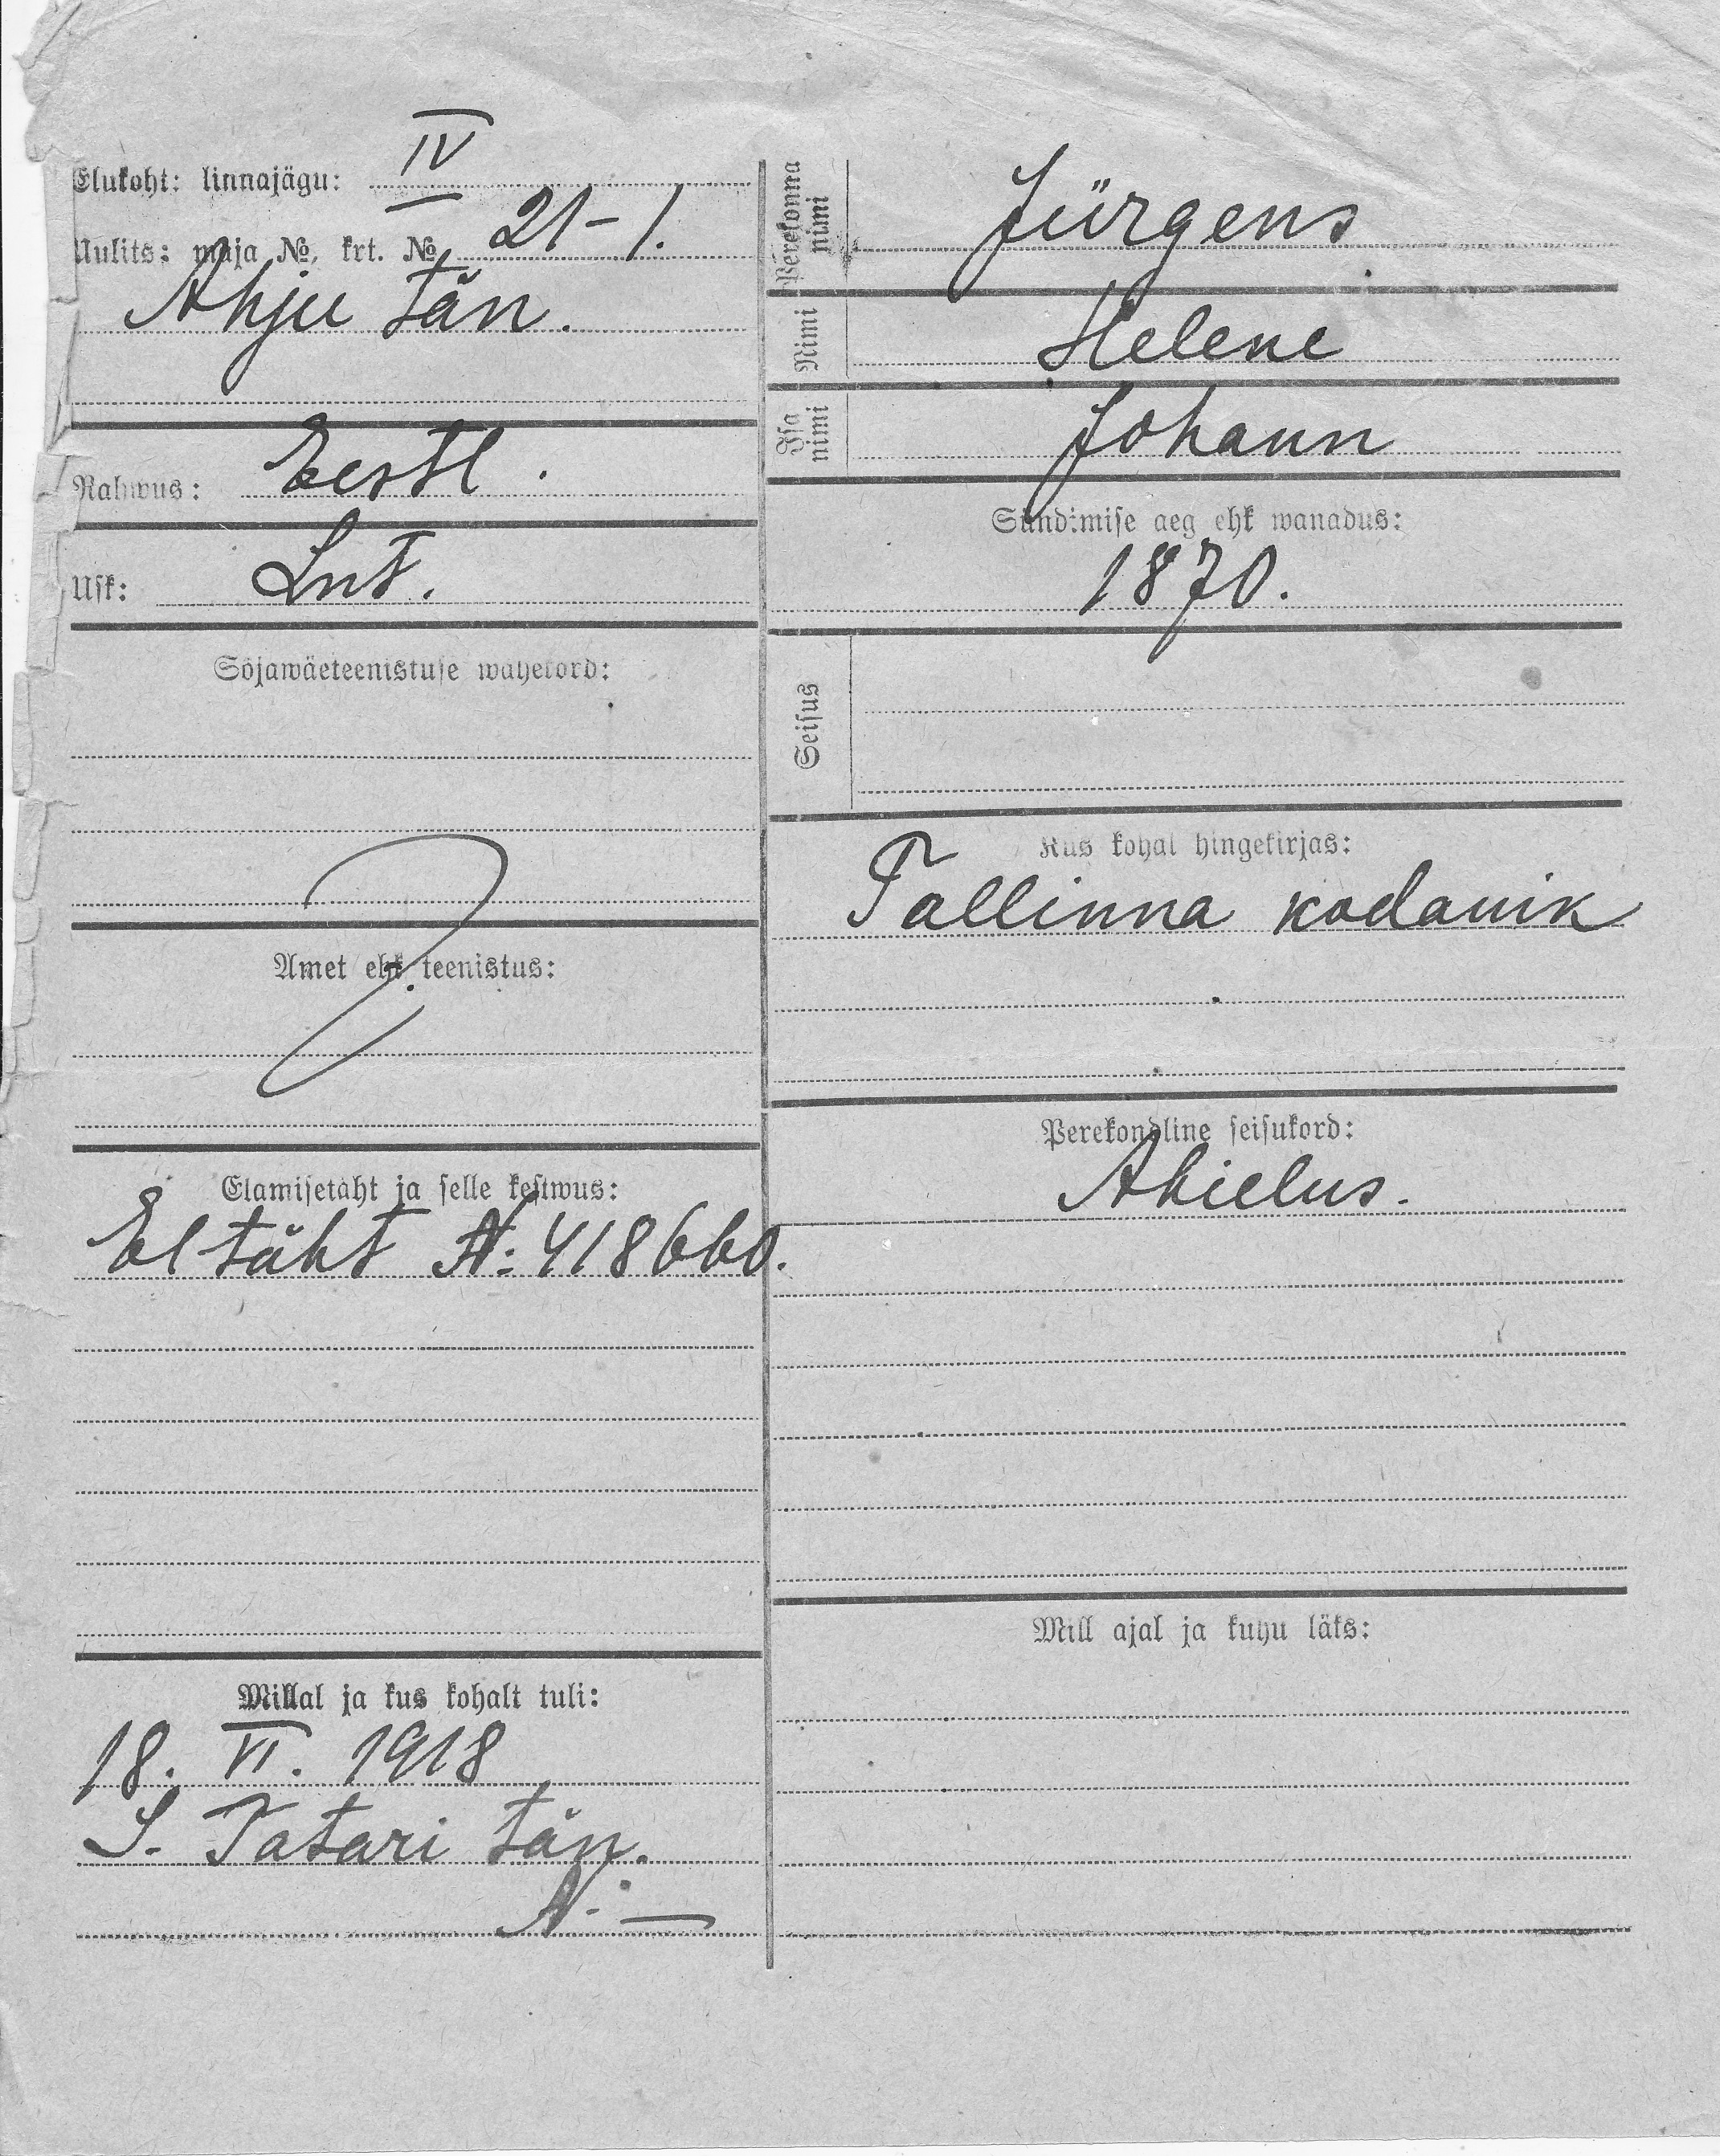 Elukoht: linnajägu: IV
Uulits: maja №, krt. № 21-1.
Ahju tän.
Rahwus: Eestl.
Usk: Lut.
Sõjawäeteenistuse wahekord:
Amet ehk teenistus:
Elamisetäht ja selle kestwus:
El täht N: 418660.
Millal ja kus kohalt tuli:
18. VI. 1918
S. Tatari tän.
N. —
Perekonna nimi Jürgens
Nimi Helene
Isa nimi Johann
Sündimise aeg ehk wanadus:
1870.
Seisus
Kus kohal hingekirjas:
Tallinna kodanik
Perekondline seisukord:
Abielus.
Mill ajal ja kuhu läks: